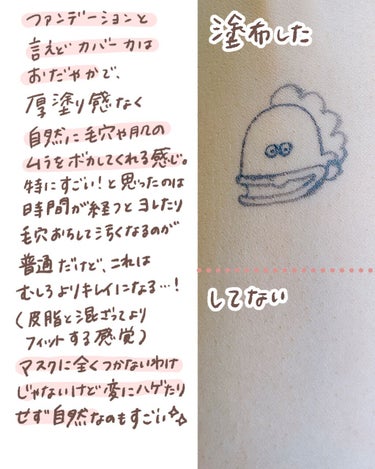 ファンデーションと
言えど カバー力は
おだやかで、
厚塗り感なく
自然に毛穴や肌の
ムラをボカしてくれる感じ。
特にすごい！と思ったのは
時間が経つとヨレたり
毛穴おちして汚くなるのが
普通だけど、これは
むしろよりキレイになる…！
(皮脂と混ざってより
フィットする感覚)
マスクに全くつかないわけ
じゃないけど変にハゲたり
せず自然なのもすごい
塗布した
してない